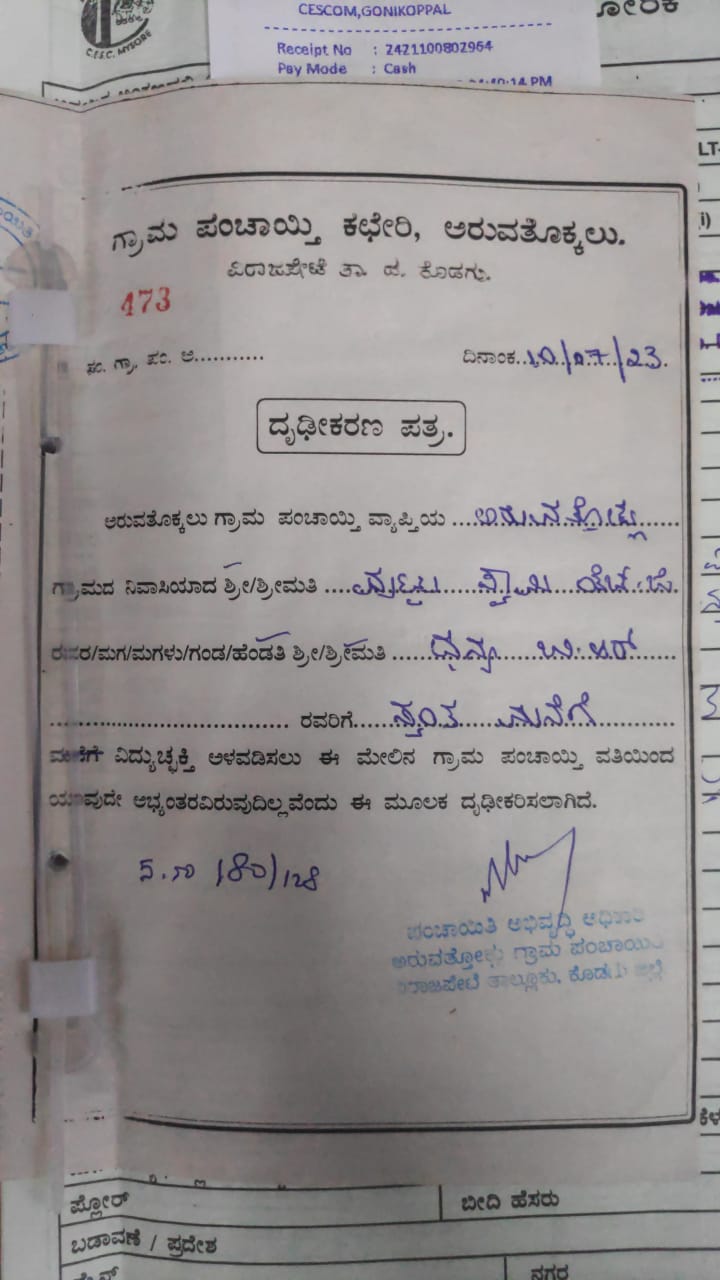 CESCOM,GONIKOPPAL
Receipt No : 2421100802964
Pay Mode : Cash
04:40:14 PM
C.E.S.C. MYSORE
LT-
ಗ್ರಾಮ ಪಂಚಾಯ್ತಿ ಕಛೇರಿ, ಅರುವತೊಕ್ಕಲು.
ವಿರಾಜಪೇಟೆ ತಾ. ದ. ಕೊಡಗು.
473
ಸಂ. ಗ್ರಾ. ಪಂ. ಅ...........
ದಿನಾಂಕ..10/07/23.
ದೃಢೀಕರಣ ಪತ್ರ.
ಅರುವತೊಕ್ಕಲು ಗ್ರಾಮ ಪಂಚಾಯ್ತಿ ವ್ಯಾಪ್ತಿಯ ....ಅರುವತ್ತೊಕ್ಲು......
ಗ್ರಾಮದ ನಿವಾಸಿಯಾದ ಶ್ರೀ/ಶ್ರೀಮತಿ .... ಸ್ವಾಮಿ ಹೆಚ್.ಜೆ.
ರವರ/ಮಗ/ಮಗಳು/ಗಂಡ/ಹೆಂಡತಿ ಶ್ರೀ/ಶ್ರೀಮತಿ ......ಧನ್ಯ ಬಿ.ಆರ್......
.................................. ರವರಿಗೆ.....ಸ್ವಂತ ಮನೆಗೆ............
ಮನೆಗೆ ವಿದ್ಯುಚ್ಛಕ್ತಿ ಅಳವಡಿಸಲು ಈ ಮೇಲಿನ ಗ್ರಾಮ ಪಂಚಾಯ್ತಿ ವತಿಯಿಂದ
ಯಾವುದೇ ಅಭ್ಯಂತರವಿರುವುದಿಲ್ಲವೆಂದು ಈ ಮೂಲಕ ದೃಢೀಕರಿಸಲಾಗಿದೆ.
180/128
ಪಂಚಾಯಿತಿ ಅಭಿವೃದ್ಧಿ ಅಧಿಕಾರಿ
ಅರುವತ್ತೋಕ್ಲು ಗ್ರಾಮ ಪಂಚಾಯಿತಿ
ವಿರಾಜಪೇಟೆ ತಾಲ್ಲೂಕು, ಕೊಡಗು ಜಿಲ್ಲೆ
ಪ್ಲೋರ್
ಬೀದಿ ಹೆಸರು
ಬಡಾವಣೆ / ಪ್ರದೇಶ
ನಗರ